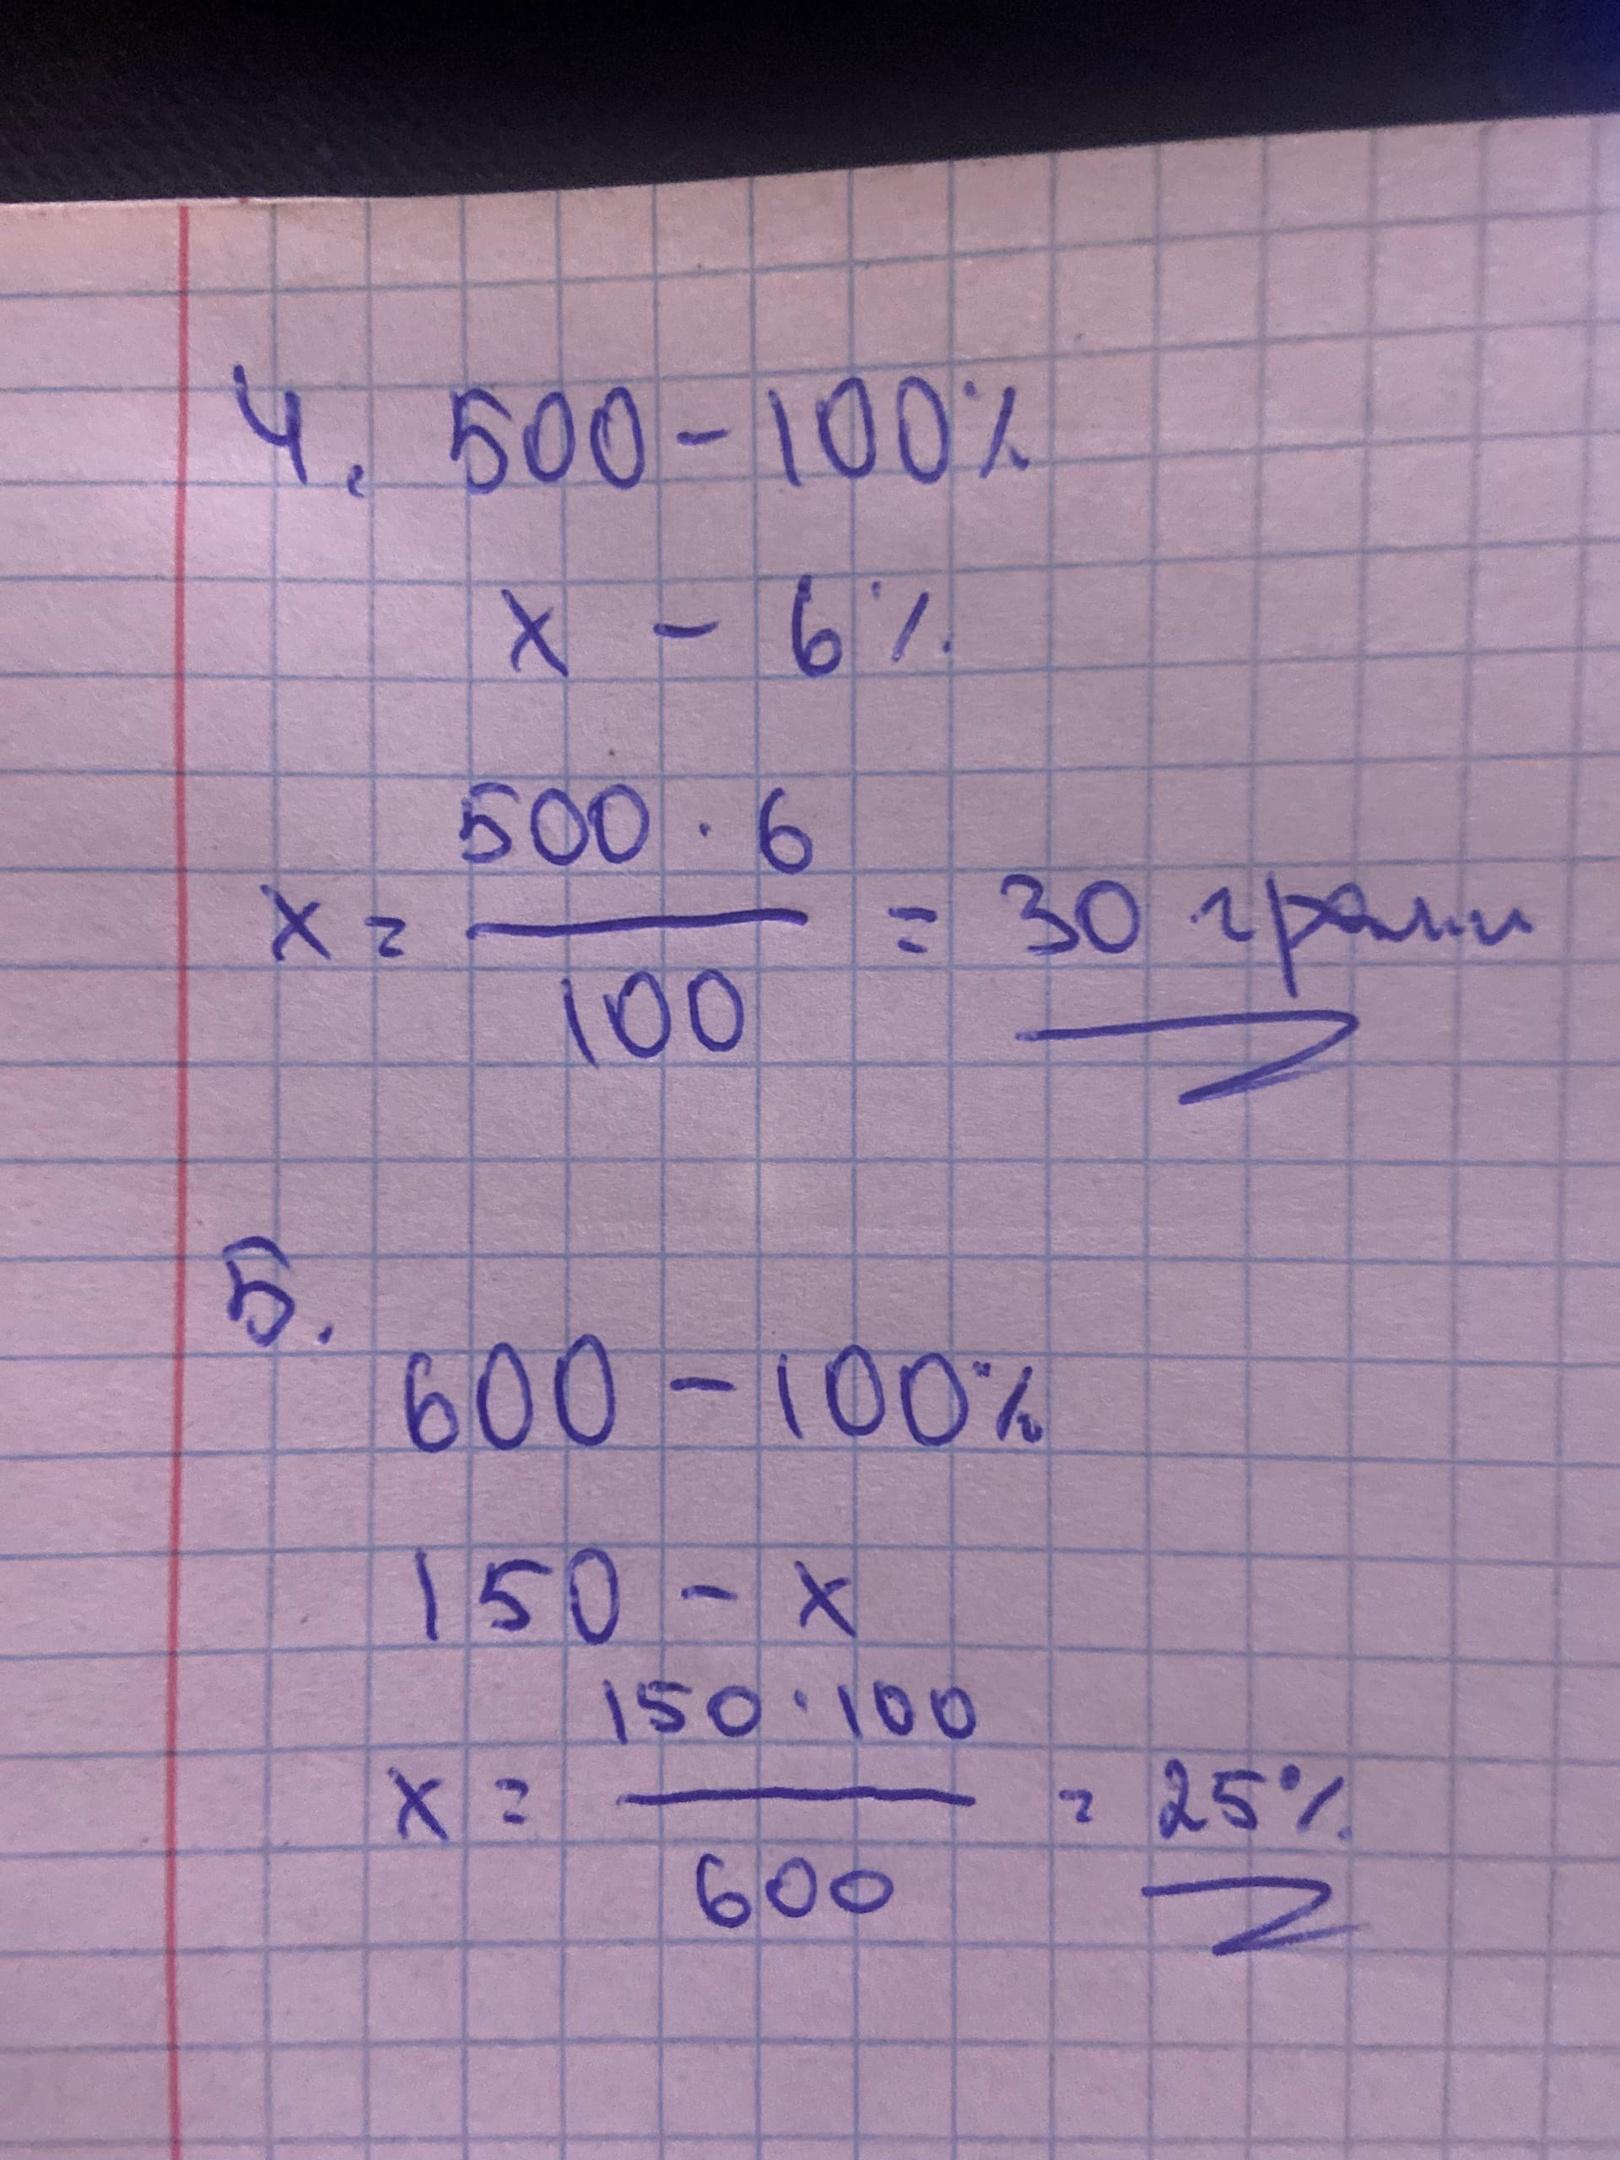 4. 500 - 100%
x - 6%
x = 500 · 6 / 100 = 30 грами
5.
600 - 100%
150 - x
x = 150 · 100 / 600 = 25%